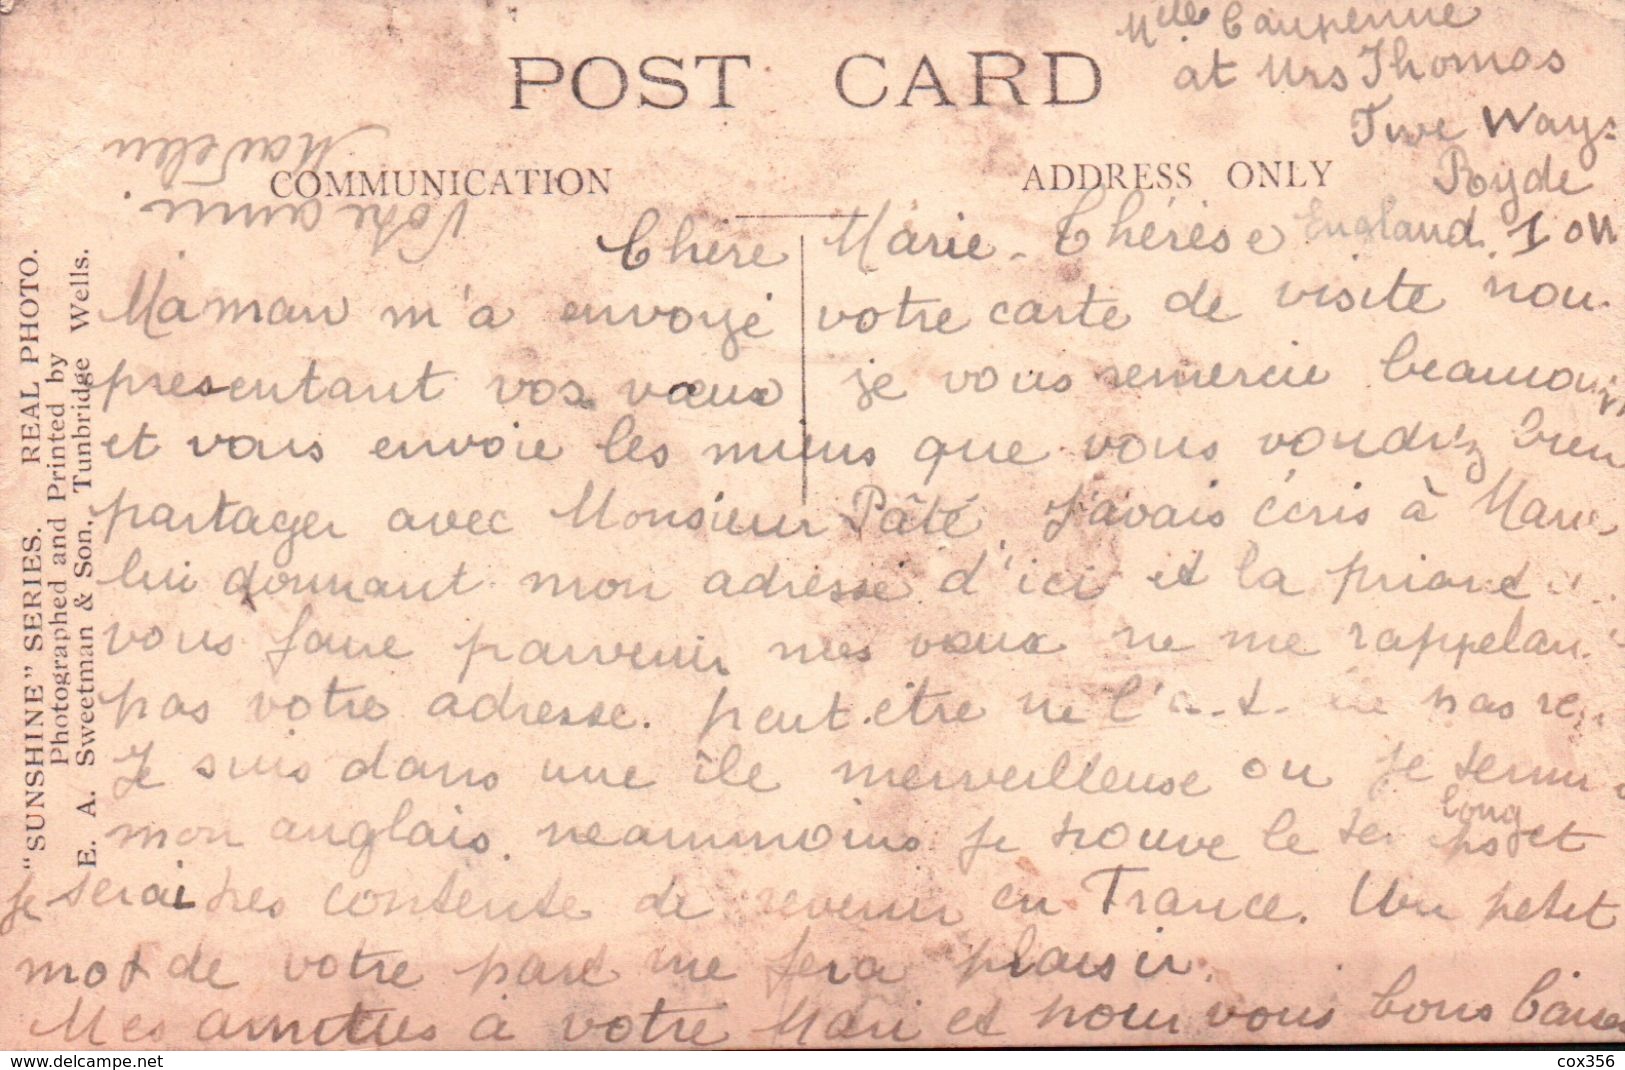 Mlle Caupenne
at Mrs Thomas
Twe Ways
Ryde
England. I of W
POST CARD
COMMUNICATION
ADDRESS ONLY
Chère Marie-Thérèse
Maman m'a envoyé votre carte de visite nous
présentant vos vœux je vous remercie beaucoup
et vous envoie les miens que vous voudrez bien
partager avec Monsieur Pâté. J'avais écris à Marie
lui donnant mon adresse d'ici et la priant
vous faire parvenir mes vœux ne me rappelant
pas votre adresse. peut-être ne l'a-t- pas
Je suis dans une île merveilleuse ou je termine
mon anglais. neammoins je trouve le temps long et
je serai très contente de revenir en France. Un petit
mot de votre part me fera plaisir.
Mes amitiés à votre Mari et pour vous bons baisers
Votre amie
"SUNSHINE" SERIES. REAL PHOTO.
Photographed and Printed by
E. A. Sweetman & Son, Tunbridge Wells.
cox356